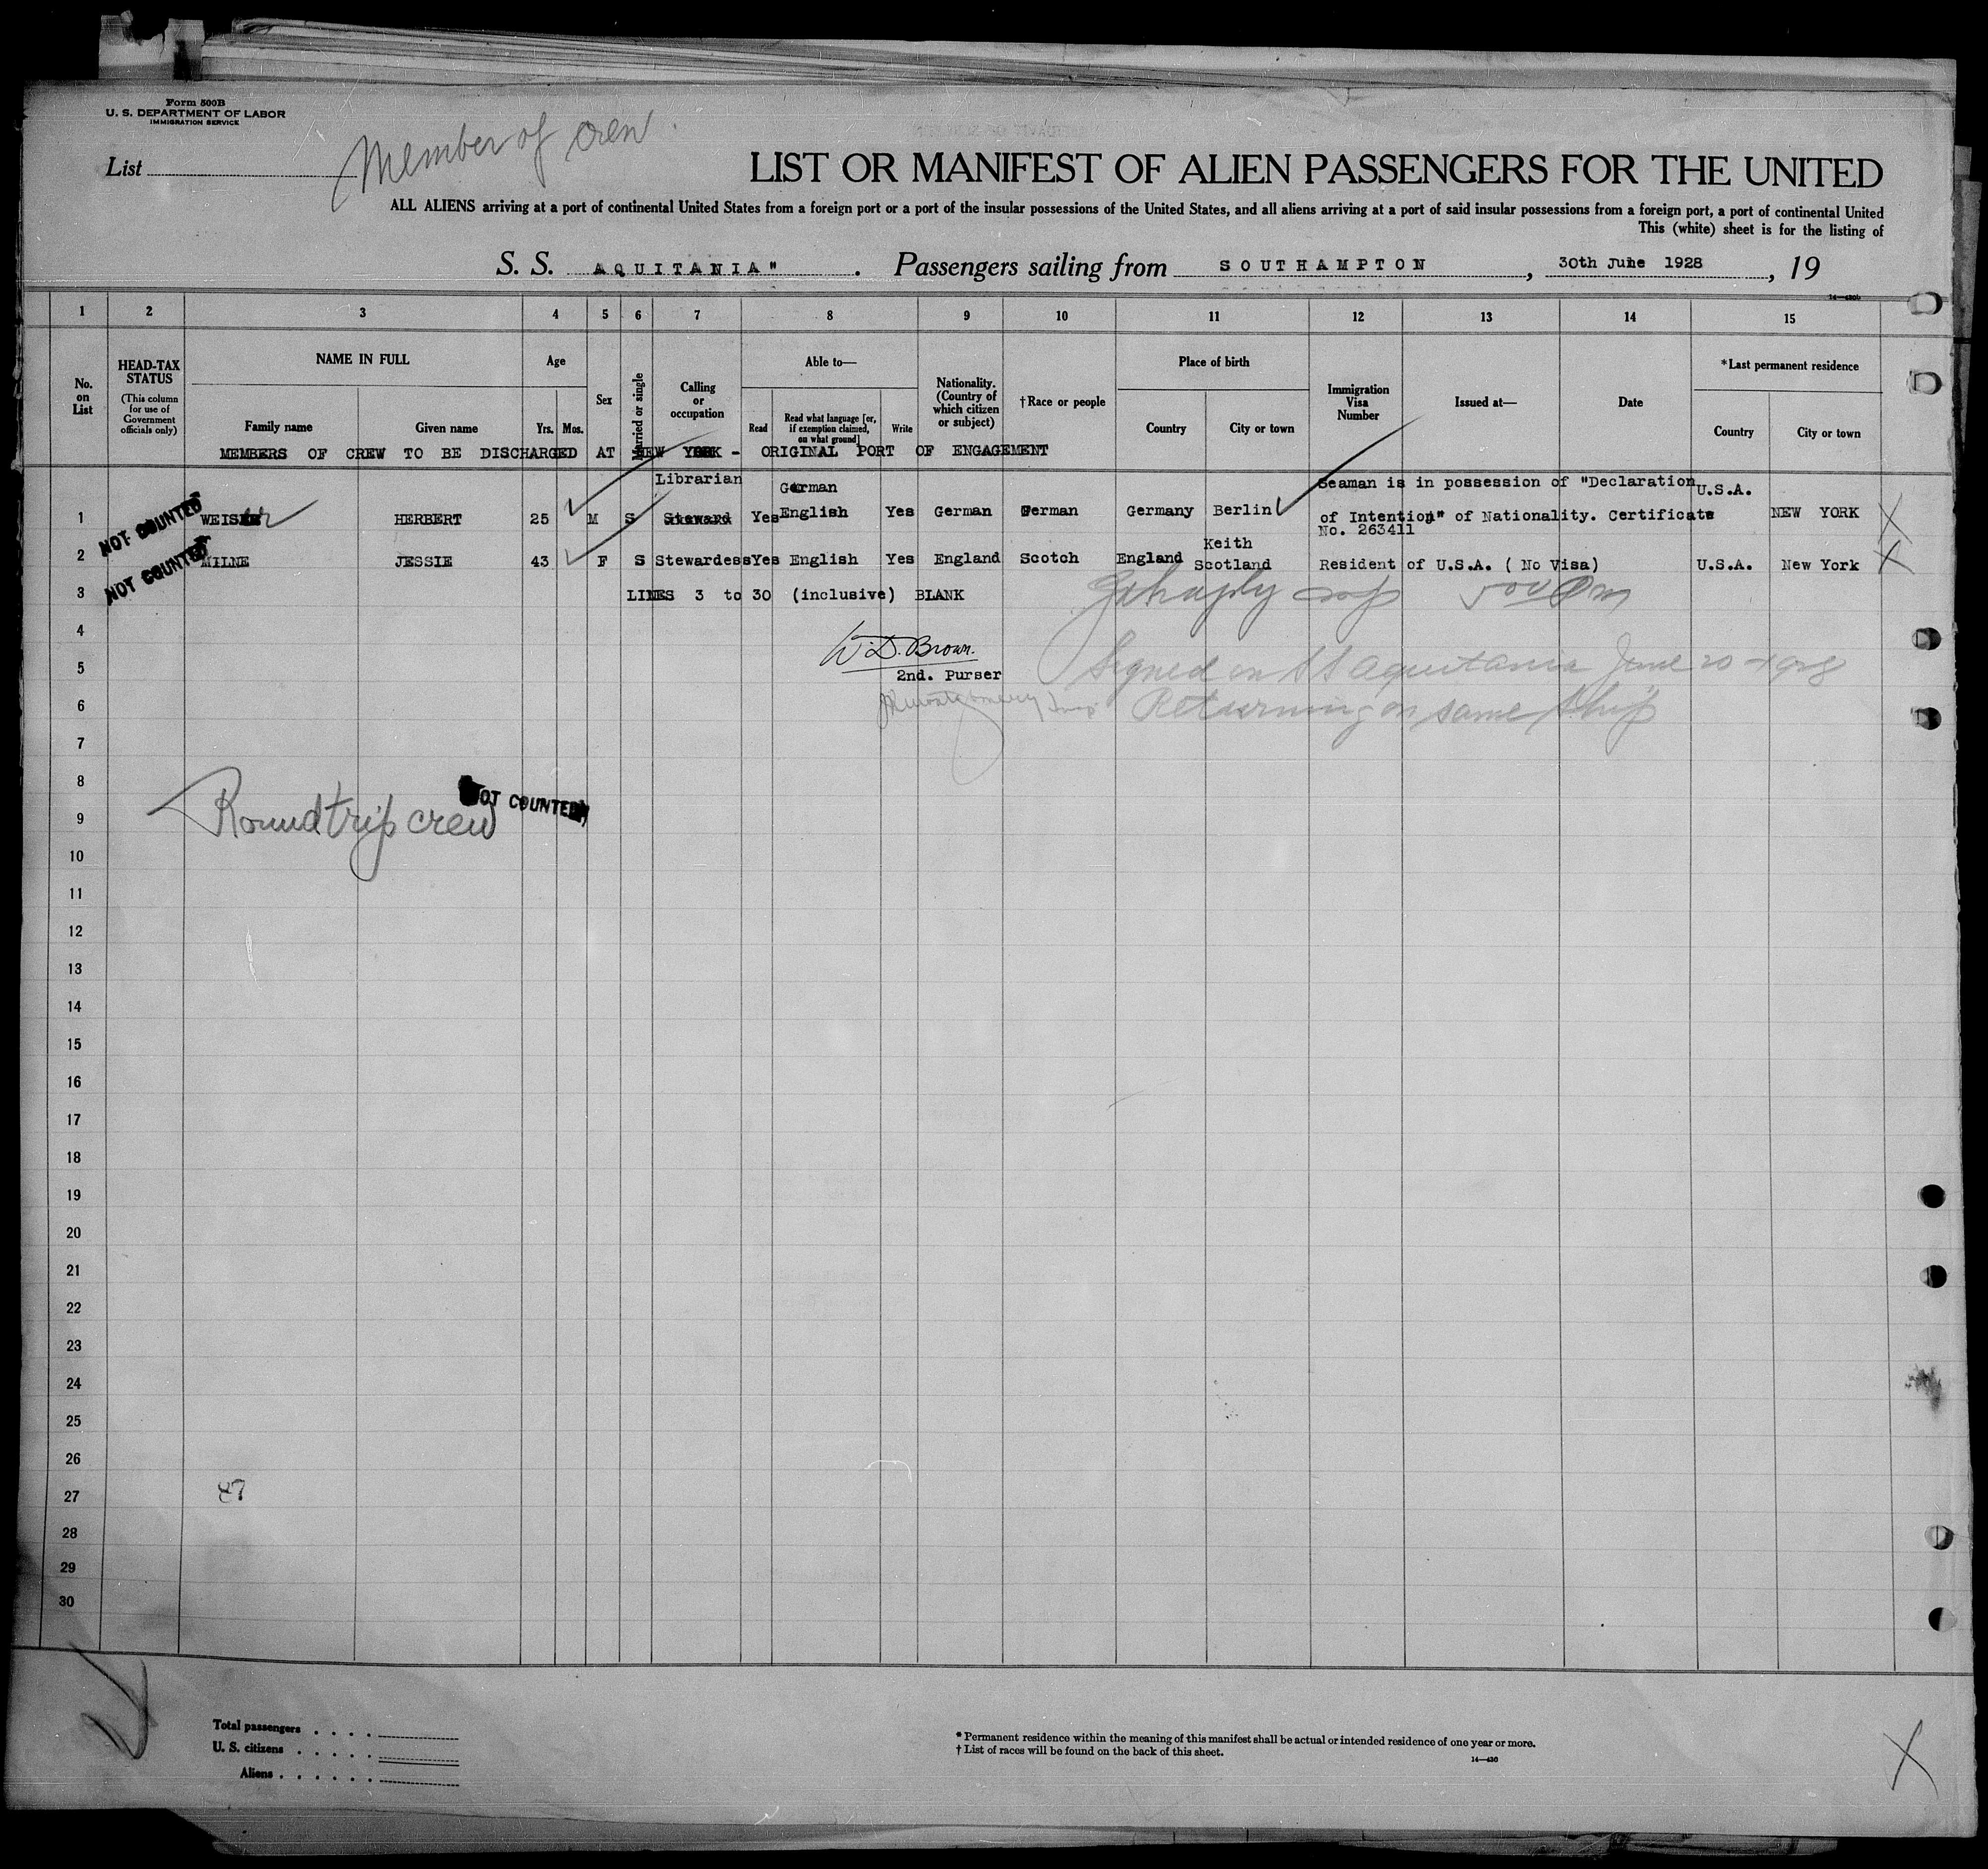 Form 500B
U. S. DEPARTMENT OF LABOR
IMMIGRATION SERVICE
List
Member of crew
LIST OR MANIFEST OF ALIEN PASSENGERS FOR THE UNITED
ALL ALIENS arriving at a port of continental United States from a foreign port or a port of the insular possessions of the United States, and all aliens arriving at a port of said insular possessions from a foreign port, a port of continental United
This (white) sheet is for the listing of
S. S. AQUITANIA" . Passengers sailing from SOUTHAMPTON , 30th June 1928 , 19
14—430b
1 2 3 4 5 6 7 8 9 10 11 12 13 14 15
No. on List
HEAD-TAX STATUS
(This column for use of Government officials only)
NAME IN FULL
Family name
Given name
Age
Yrs.
Mos.
Sex
Married or single
Calling or occupation
Able to—
Read
Read what language [or, if exemption claimed, on what ground]
Write
Nationality. (Country of which citizen or subject)
†Race or people
Place of birth
Country
City or town
Immigration Visa Number
Issued at—
Date
*Last permanent residence
Country
City or town
MEMBERS OF CREW TO BE DISCHARGED AT NEW YORK - ORIGINAL PORT OF ENGAGEMENT
NOT COUNTED
1 HERBERT 25 M S Librarian Steward Yes German English Yes German German Germany Berlin Seaman is in possession of "Declaration of Intention" of Nationality. Certificate No. 263411 U.S.A. NEW YORK
NOT COUNTED
2 MILNE JESSIE 43 F S Stewardess Yes English Yes England Scotch England Keith Scotland Resident of U.S.A. ( No Visa) U.S.A. New York
3 LINES 3 to 30 (inclusive) BLANK
4
W. D. Brown.
5 2nd. Purser
Signed on SS Aquitania June 20
6 Returning on same ship
7
8
NOT COUNTED
9 Round trip crew
10
11
12
13
14
15
16
17
18
19
20
21
22
23
24
25
26
27 87
28
29
30
Total passengers
U. S. citizens
Aliens
* Permanent residence within the meaning of this manifest shall be actual or intended residence of one year or more.
† List of races will be found on the back of this sheet.
14—430